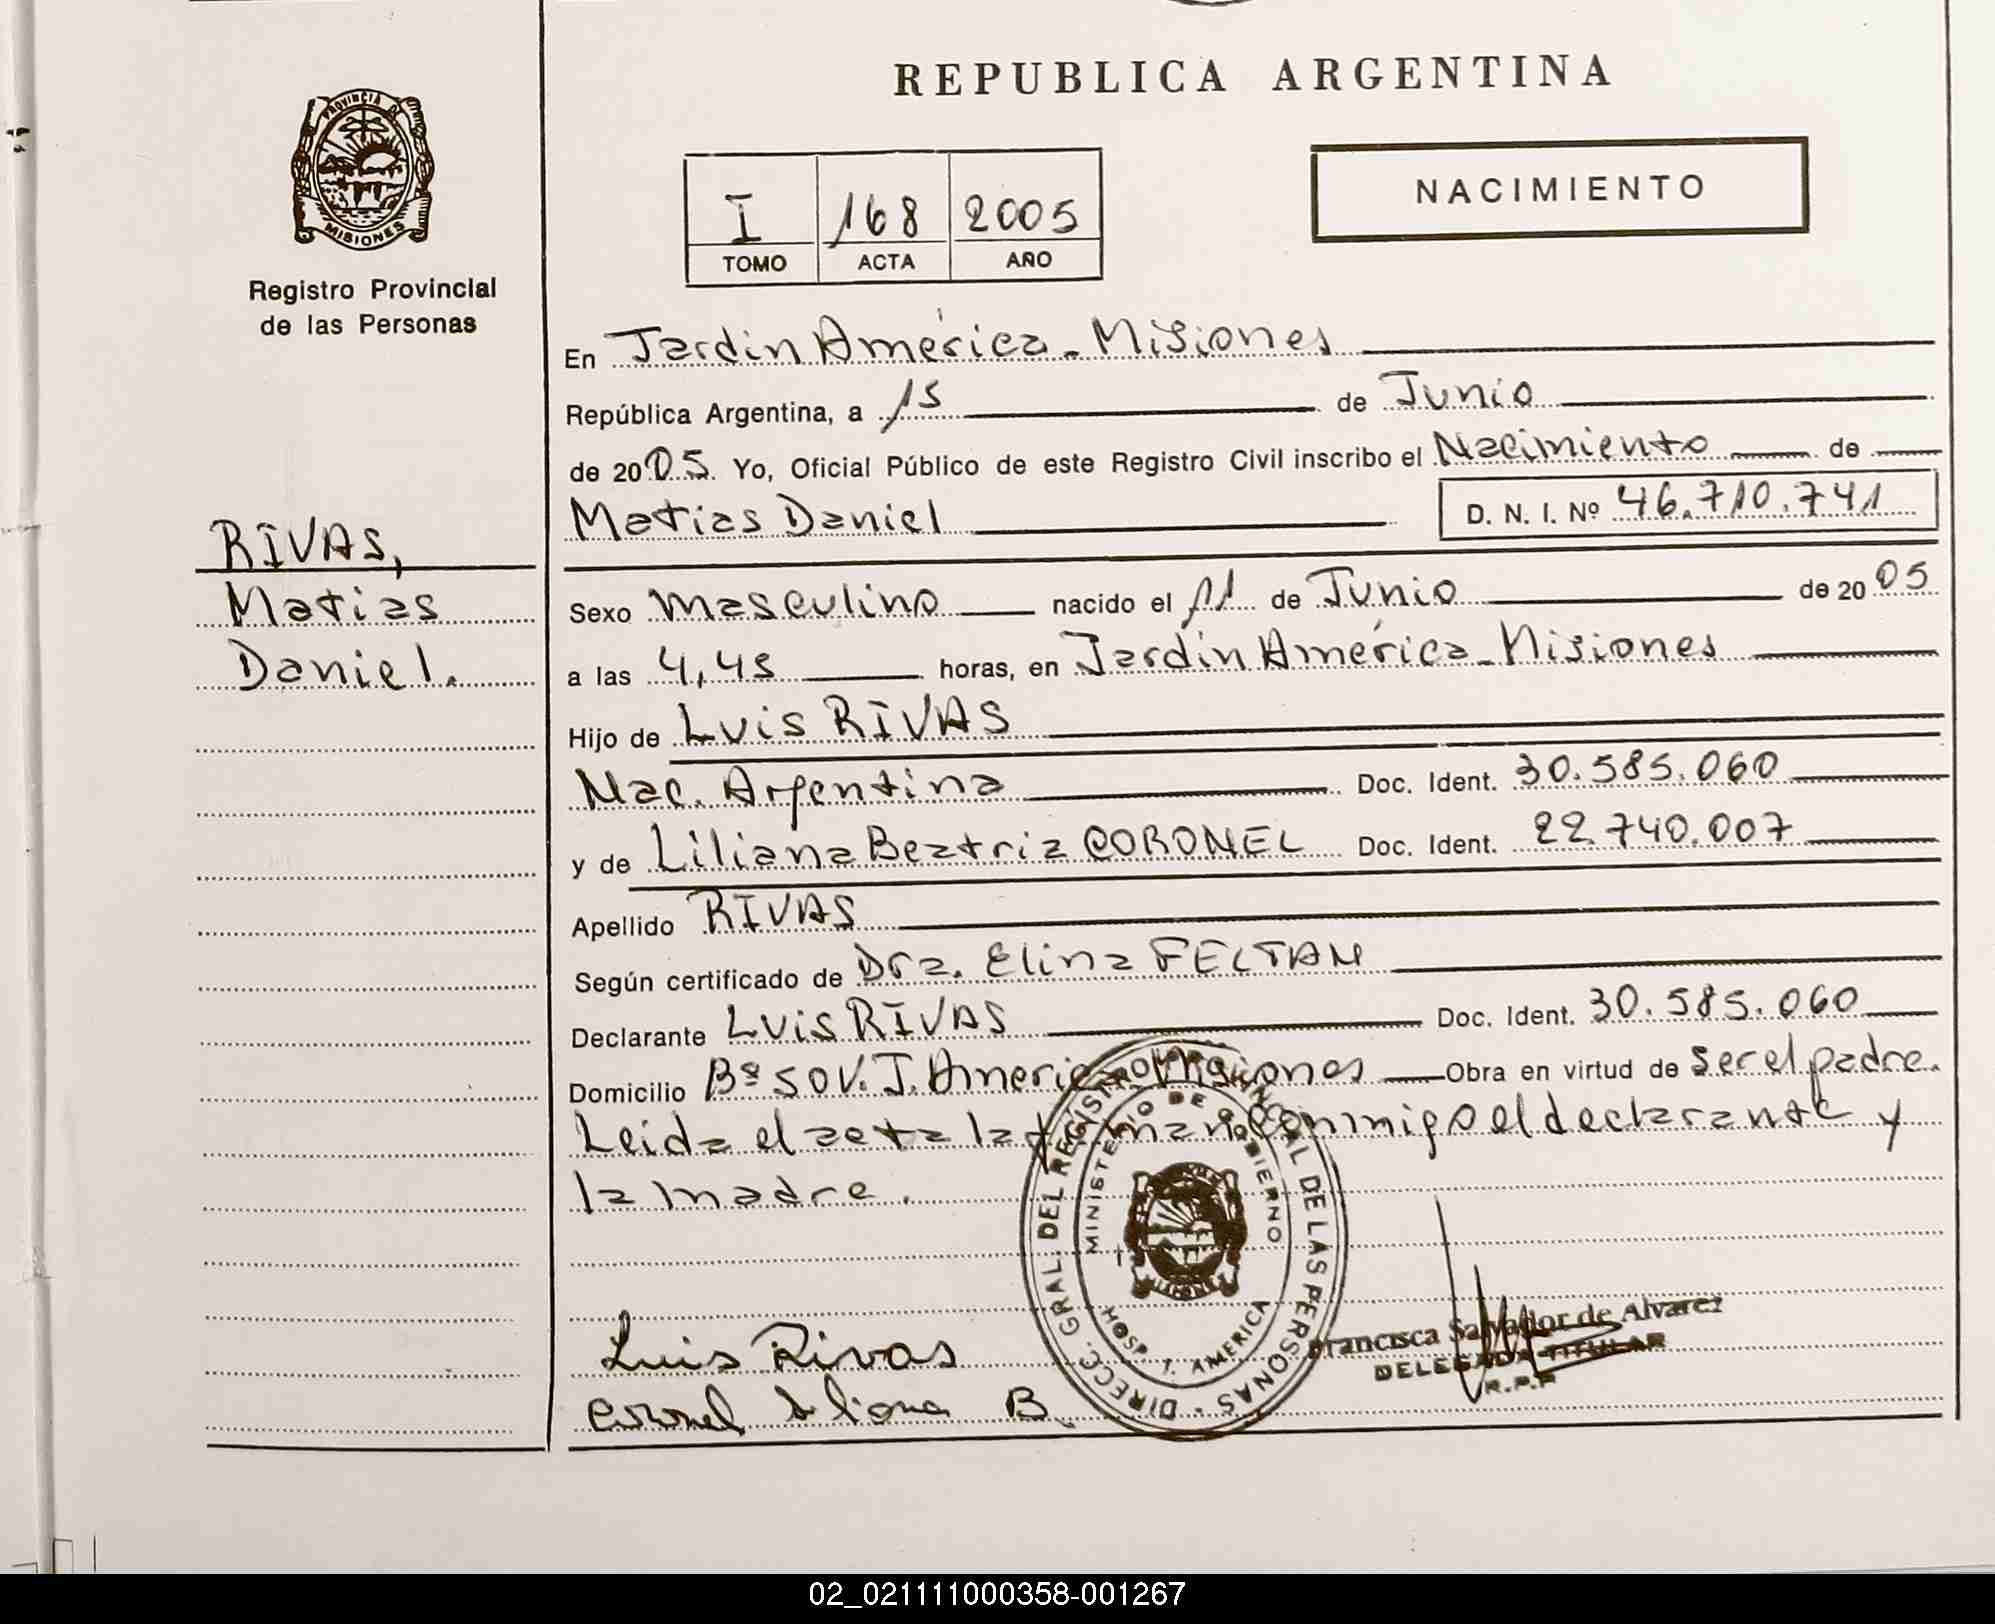 REPUBLICA ARGENTINA
PROVINCIA DE
MISIONES
Registro Provincial
de las Personas
I 168 2005
TOMO ACTA AÑO
NACIMIENTO
En Jardin América - Misiones
República Argentina, a 15 de Junio
de 2005. Yo, Oficial Público de este Registro Civil inscribo el Nacimiento de
Matias Daniel D. N. I. Nº 46.710.741
RIVAS,
Matias
Daniel.
Sexo masculino nacido el 11 de Junio de 2005
a las 4,45 horas, en Jardin América - Misiones
Hijo de Luis RIVAS
Nac. Argentina Doc. Ident. 30.585.060
y de Liliana Beatriz CORONEL Doc. Ident. 22.740.007
Apellido RIVAS
Según certificado de Dra. Elina FELTAN
Declarante Luis RIVAS Doc. Ident. 30.585.060
Domicilio Bº SOV. J. America Misiones Obra en virtud de ser el padre.
Leida el acta la firman conmigo el declarante y
la madre.
DIRECC. GRAL. DEL REGISTRO PROVINCIAL DE LAS PERSONAS
MINISTERIO DE GOBIERNO
HOSP. J. AMERICA
Luis Rivas
Coronel Liliana B.
Francisca Salvador de Alvarez
DELEGADA TITULAR
R.P.P
02_021111000358-001267